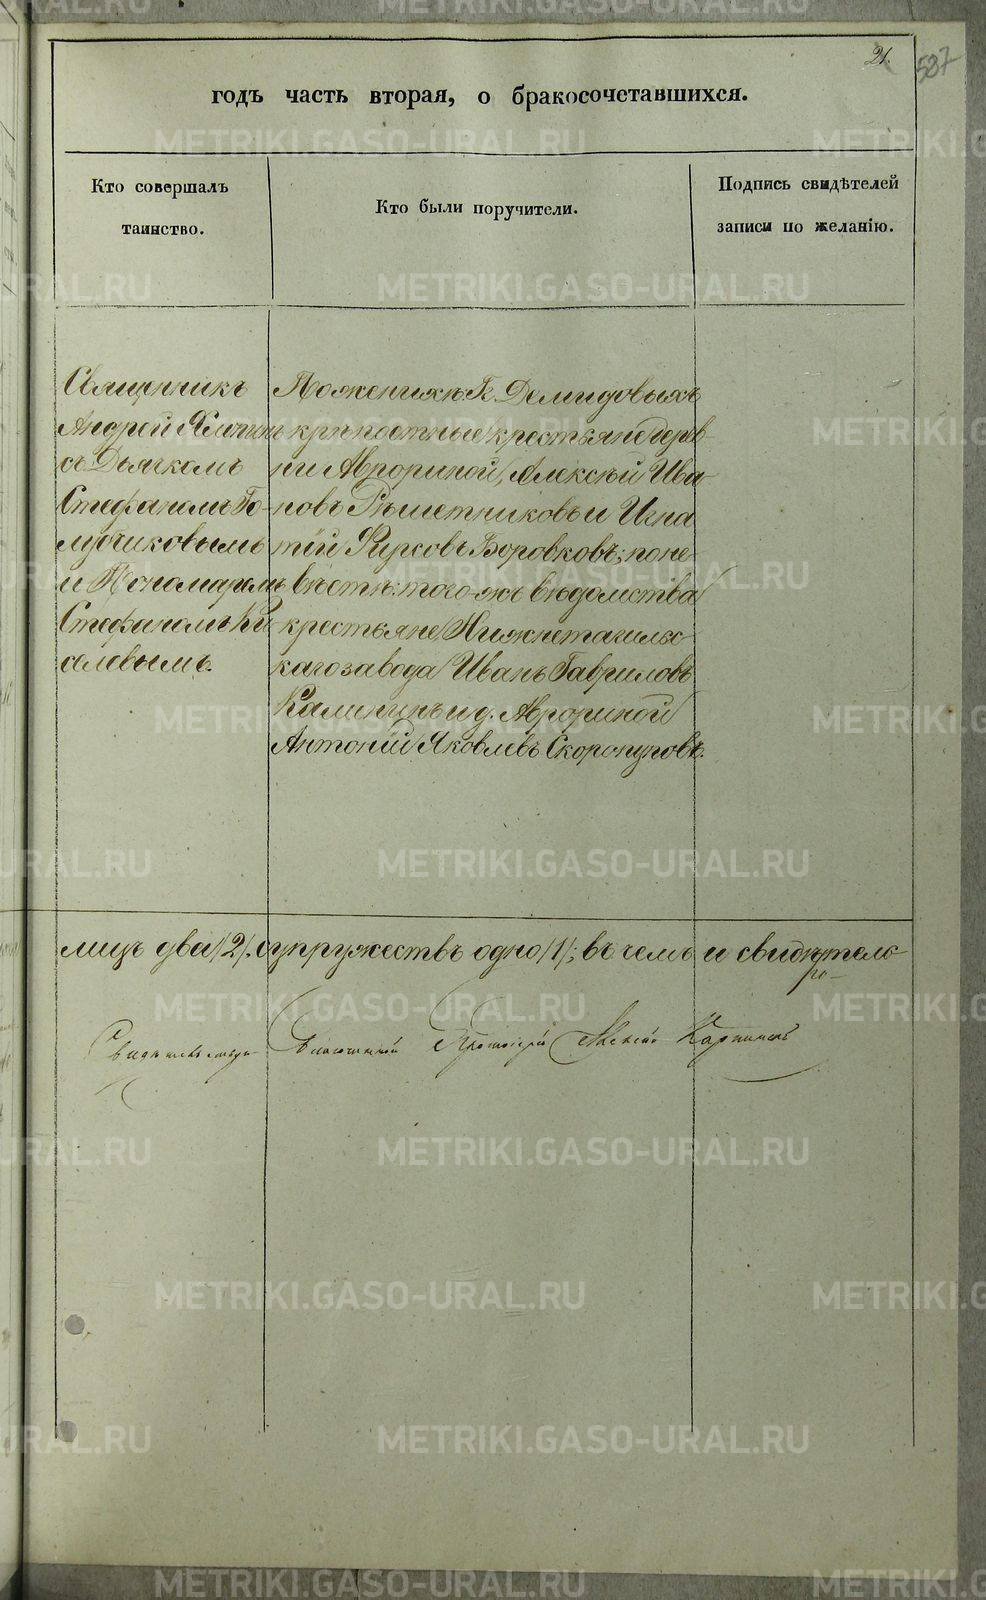 21.
587
годъ часть вторая, о бракосочетавшихся.
Кто совершалъ
таинство.
Кто были поручители.
Подпись свидѣтелей
записи по желанію.
Священникъ
Андрей
съ Дьячкомъ
Стефаномъ Го-
лубчиковымъ
и Пономаремъ
Стефаномъ Ки
селевымъ.
По женихѣ: Г. Демидовыхъ
крѣпостные крестьяне дерев-
ни Аврориной, Алексѣй Ива-
новъ Рѣшетниковъ и Игна
тій Фирсовъ Боровковъ; по не-
вѣстѣ: того-жъ вѣдомства
крестьяне Нижнетагильс-
каго завода Иванъ Гавриловъ
Калининъ и д. Аврориной
Антоній Яковлевъ Скоропуповъ.
лицъ два /2/. супружествъ одно /1/; въ чемъ и свидѣтельс-
Благочинный Протоіерей
METRIKI.GASO-URAL.RU